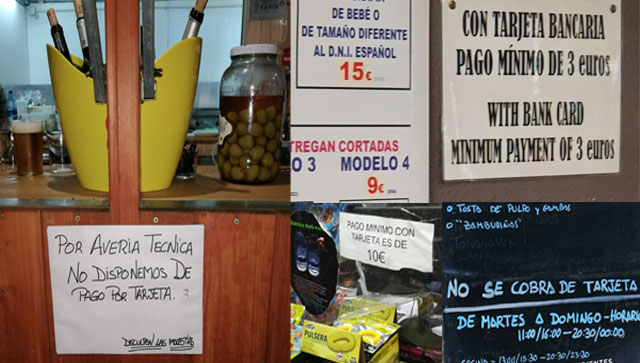 POR AVERIA TECNICA
NO DISPONEMOS DE
PAGO POR TARJETA.
DISCULPEN LAS MOLESTIAS
DE BEBÉ O
DE TAMAÑO DIFERENTE
AL D.N.I. ESPAÑOL
15€
TREGAN CORTADAS
O 3 MODELO 4
9€
CON TARJETA BANCARIA
PAGO MÍNIMO DE 3 euros
WITH BANK CARD
MINIMUM PAYMENT OF 3 euros
PAGO MINIMO CON
TARJETA ES DE
10€
PULSERA
TOSTA DE PULPO y GAMBAS
"ZAMBURIÑAS"
NO SE COBRA DE TARJETA
DE MARTES A DOMINGO - HORARIO
11:00/16:00 - 20:30/00:00
COCINA - 13:00/15:30 - 20:30/23:30